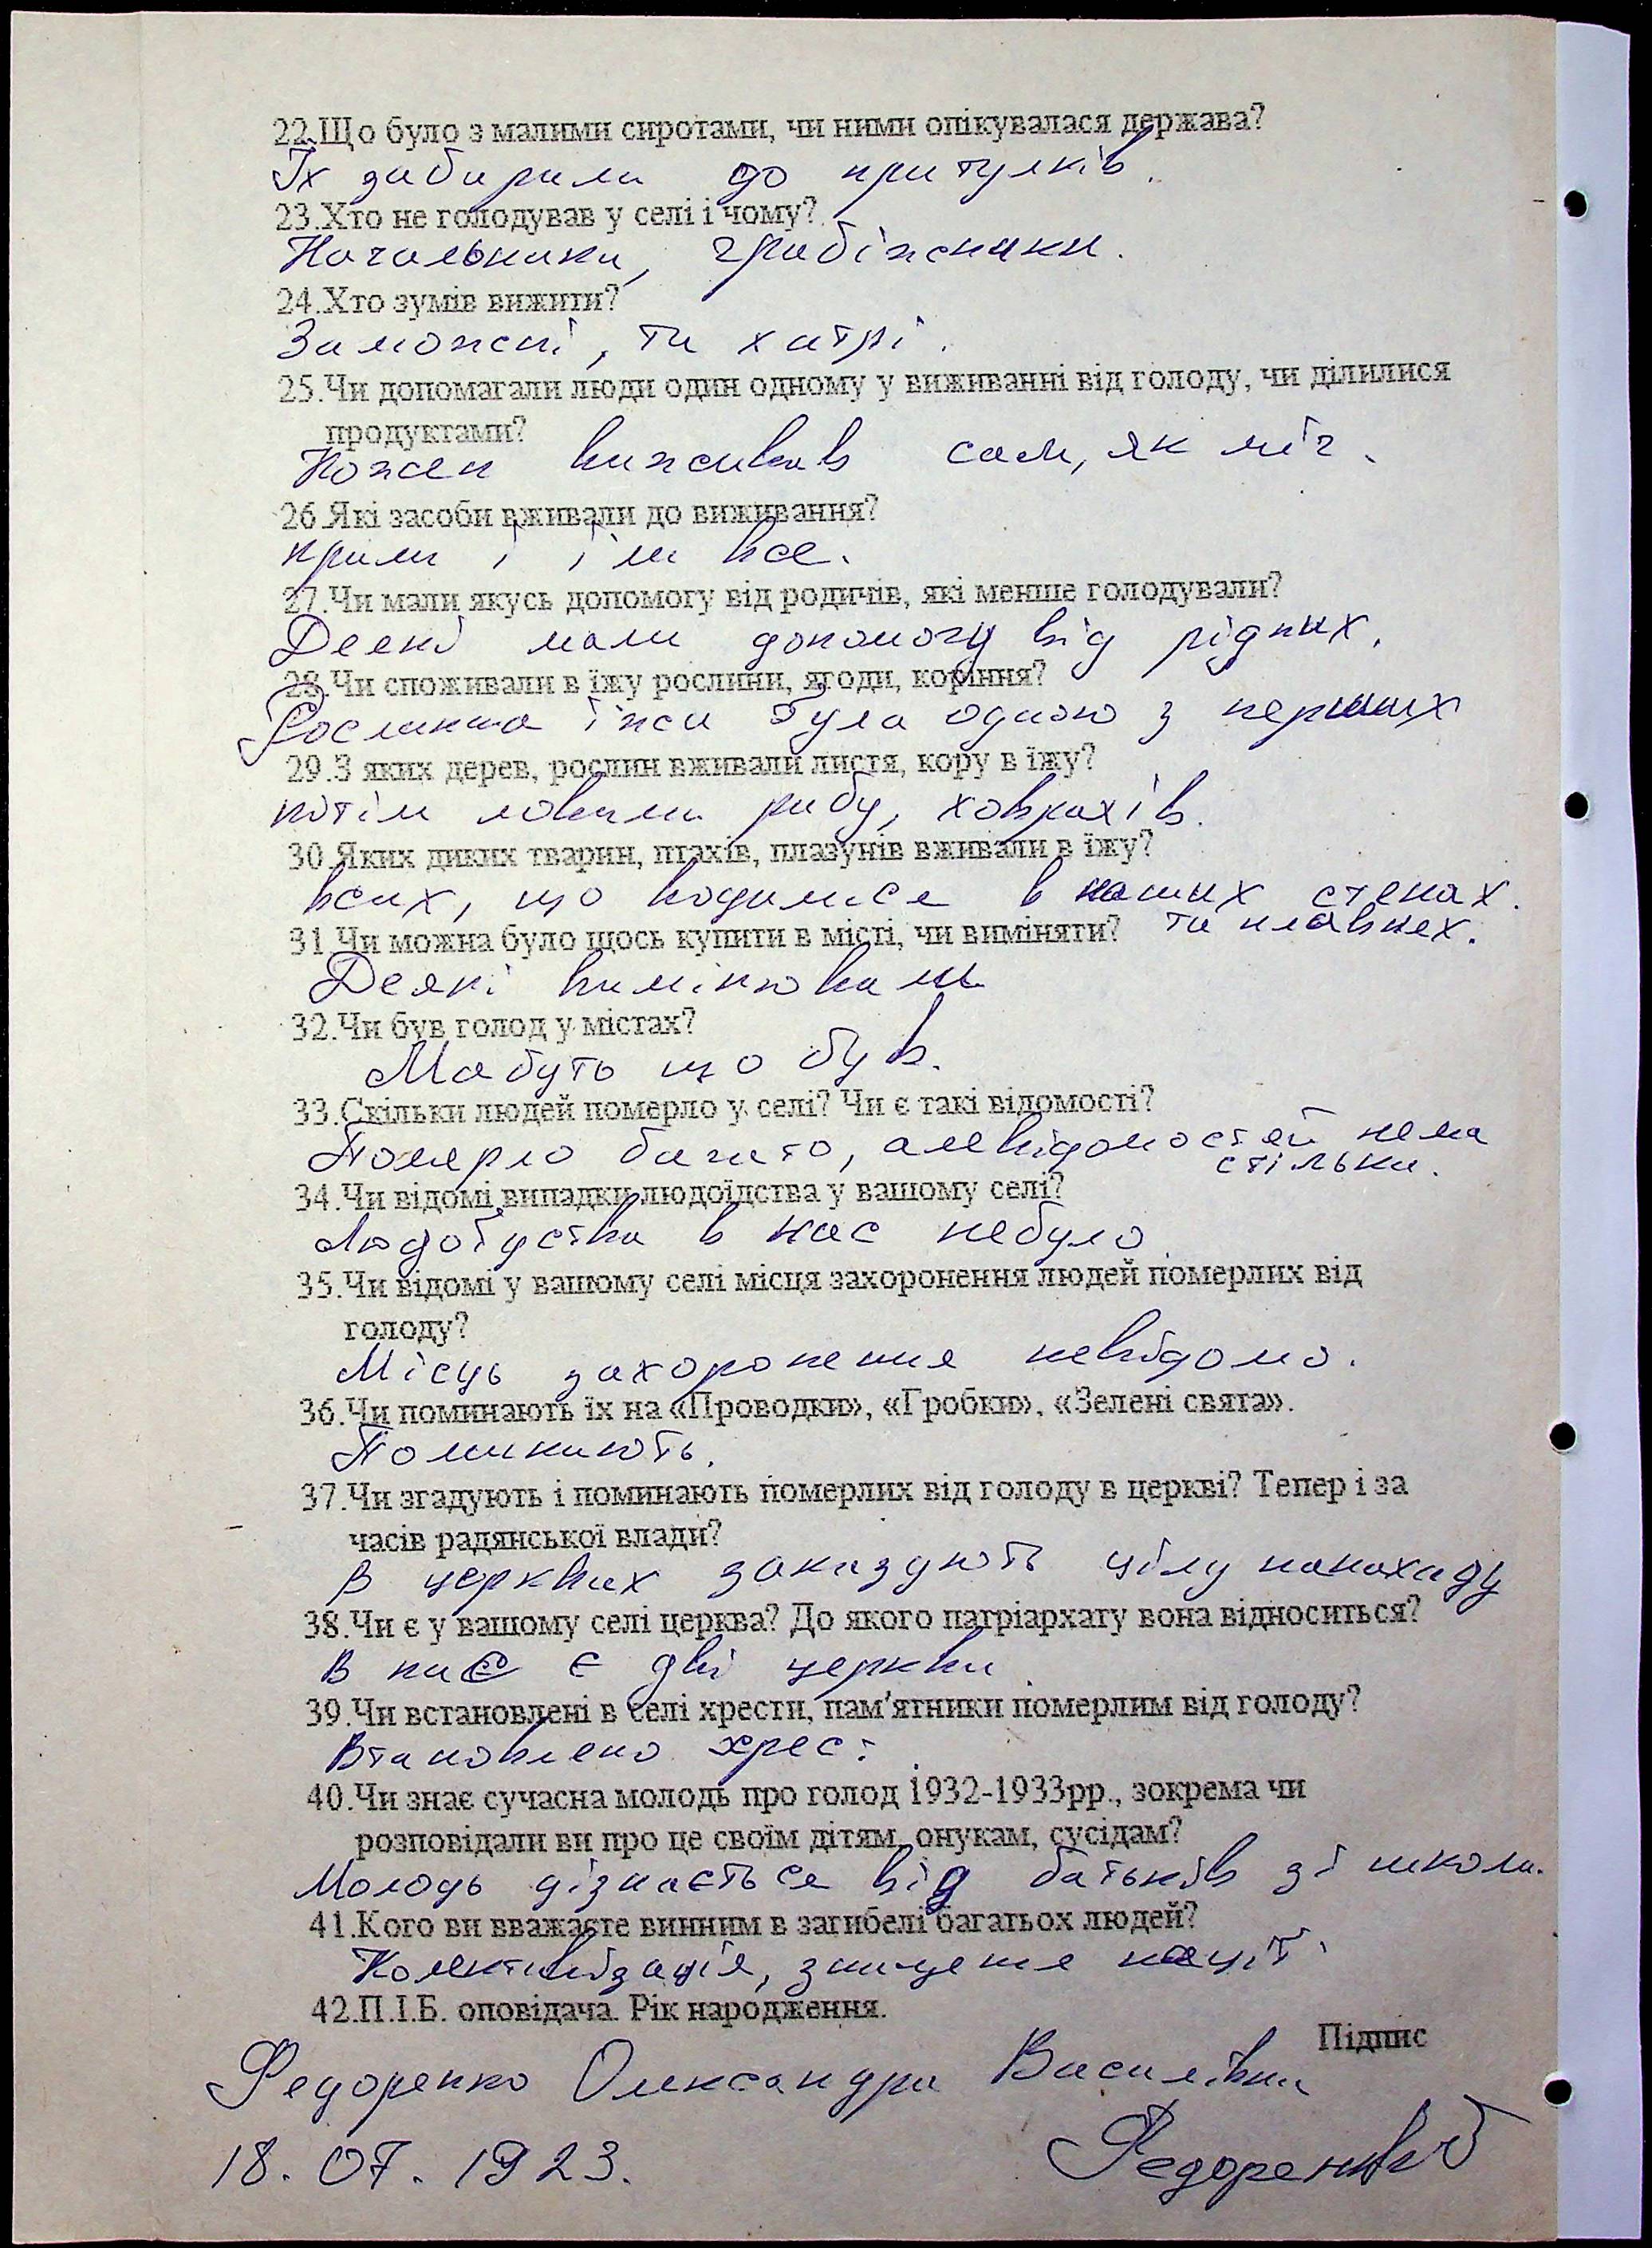 22.Що було з малими сиротами, чи ними опікувалася держава?
Їх забирали до притулків.
23.Хто не голодував у селі і чому?
Начальники, грабіжники.
24.Хто зумів вижити?
Заможні, та хитрі.
25.Чи допомагали люди один одному у виживанні від голоду, чи ділилися
продуктами?
Кожен виживав сам, як міг.
26.Які засоби вживали до виживання?
крали і їли все.
27.Чи мали якусь допомогу від родичів, які менше голодували?
Деякі мали допомогу від рідних.
28.Чи споживали в їжу рослини, ягоди, коріння?
Рослинна їжа була одною з перших
29.З яких дерев, рослин вживали листя, кору в їжу?
потім ловили рибу, ховрахів.
30.Яких диких тварин, птахів, плазунів вживали в їжу?
всих, що водилися в наших степах.
31.Чи можна було щось купити в місті, чи виміняти? та плавнях.
Деякі вимінювали
32.Чи був голод у містах?
Мабуть що був.
33.Скільки людей померло у селі? Чи є такі відомості?
Померло багато, але відомостей нема
стільки.
34.Чи відомі випадки людоїдства у вашому селі?
Людоїдства в нас небуло
35.Чи відомі у вашому селі місця захоронення людей померлих від
голоду?
Місць захоронення невідомо.
36.Чи поминають їх на «Проводки», «Гробки», «Зелені свята».
Поминають.
37.Чи згадують і поминають померлих від голоду в церкві? Тепер і за
часів радянської влади?
В церквах заказують цілу панахиду
38.Чи є у вашому селі церква? До якого патріархату вона відноситься?
В нас є дві церкви
39.Чи встановлені в селі хрести, пам'ятники померлим від голоду?
Втановлено хрест
40.Чи знає сучасна молодь про голод 1932-1933рр., зокрема чи
розповідали ви про це своїм дітям, онукам, сусідам?
Молодь дізнається від батьків зі школи.
41.Кого ви вважаєте винним в загибелі багатьох людей?
Колективізація, знищення нації
42.П.І.Б. оповідача. Рік народження.
Підпис
Федоренко Олександра Василівна
18.07.1923. Федоренко